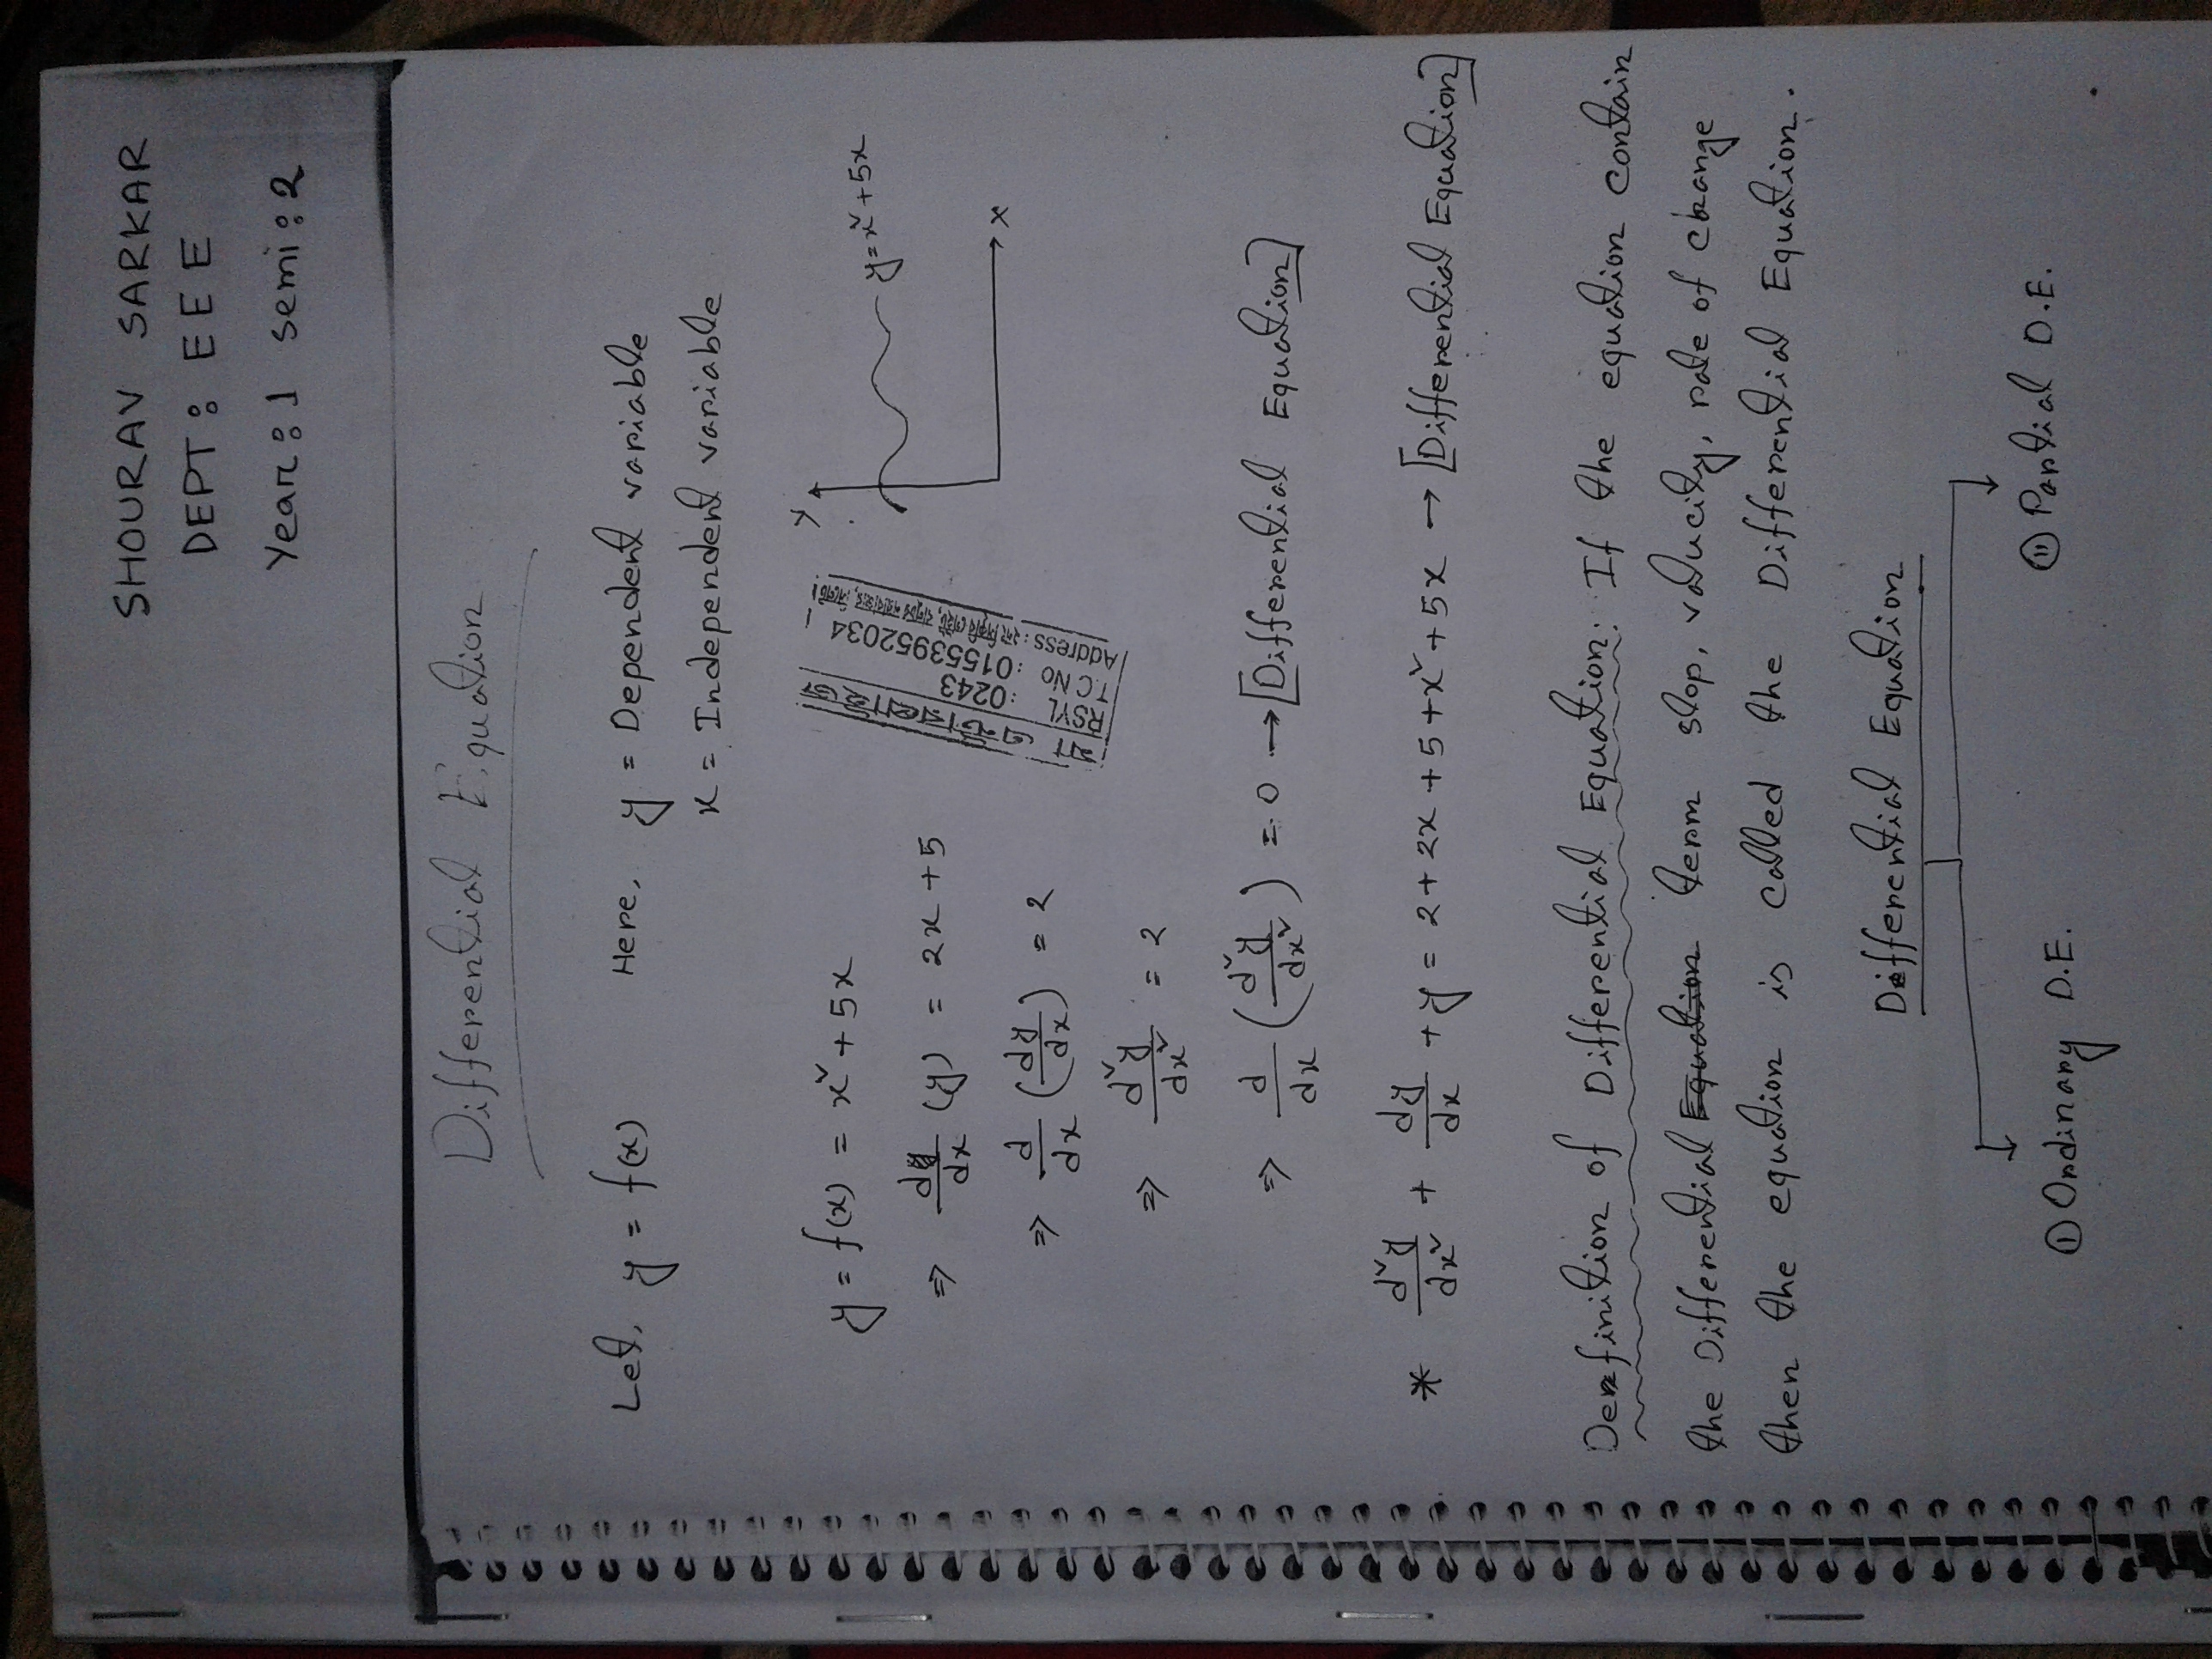 SHOURAV SARKAR
DEPT : EEE
Year : 1 semi : 2
Differential Equation
Let, y = f(x) Here, y = Dependent variable
x = Independent variable
y = f(x) = x² + 5x
⇒ dy/dx (y) = 2x + 5
⇒ d/dx (dy/dx) = 2
⇒ d²y/dx² = 2
⇒ d/dx (d²y/dx²) = 0 → [Differential Equation]
y
y = x² + 5x
x
মা এন্টারপ্রাইজ
RSYL :0243
T.C No :01553952034
Address :
* d²y/dx² + dy/dx + y = 2 + 2x + 5 + x² + 5x → [Differential Equation]
Definition of Differential Equation: If the equation contain
the Differential Equation term slop, valucity, rate of change
then the equation is called the Differential Equation.
Differential Equation
① Ordinary D.E.
⑪ Partial D.E.